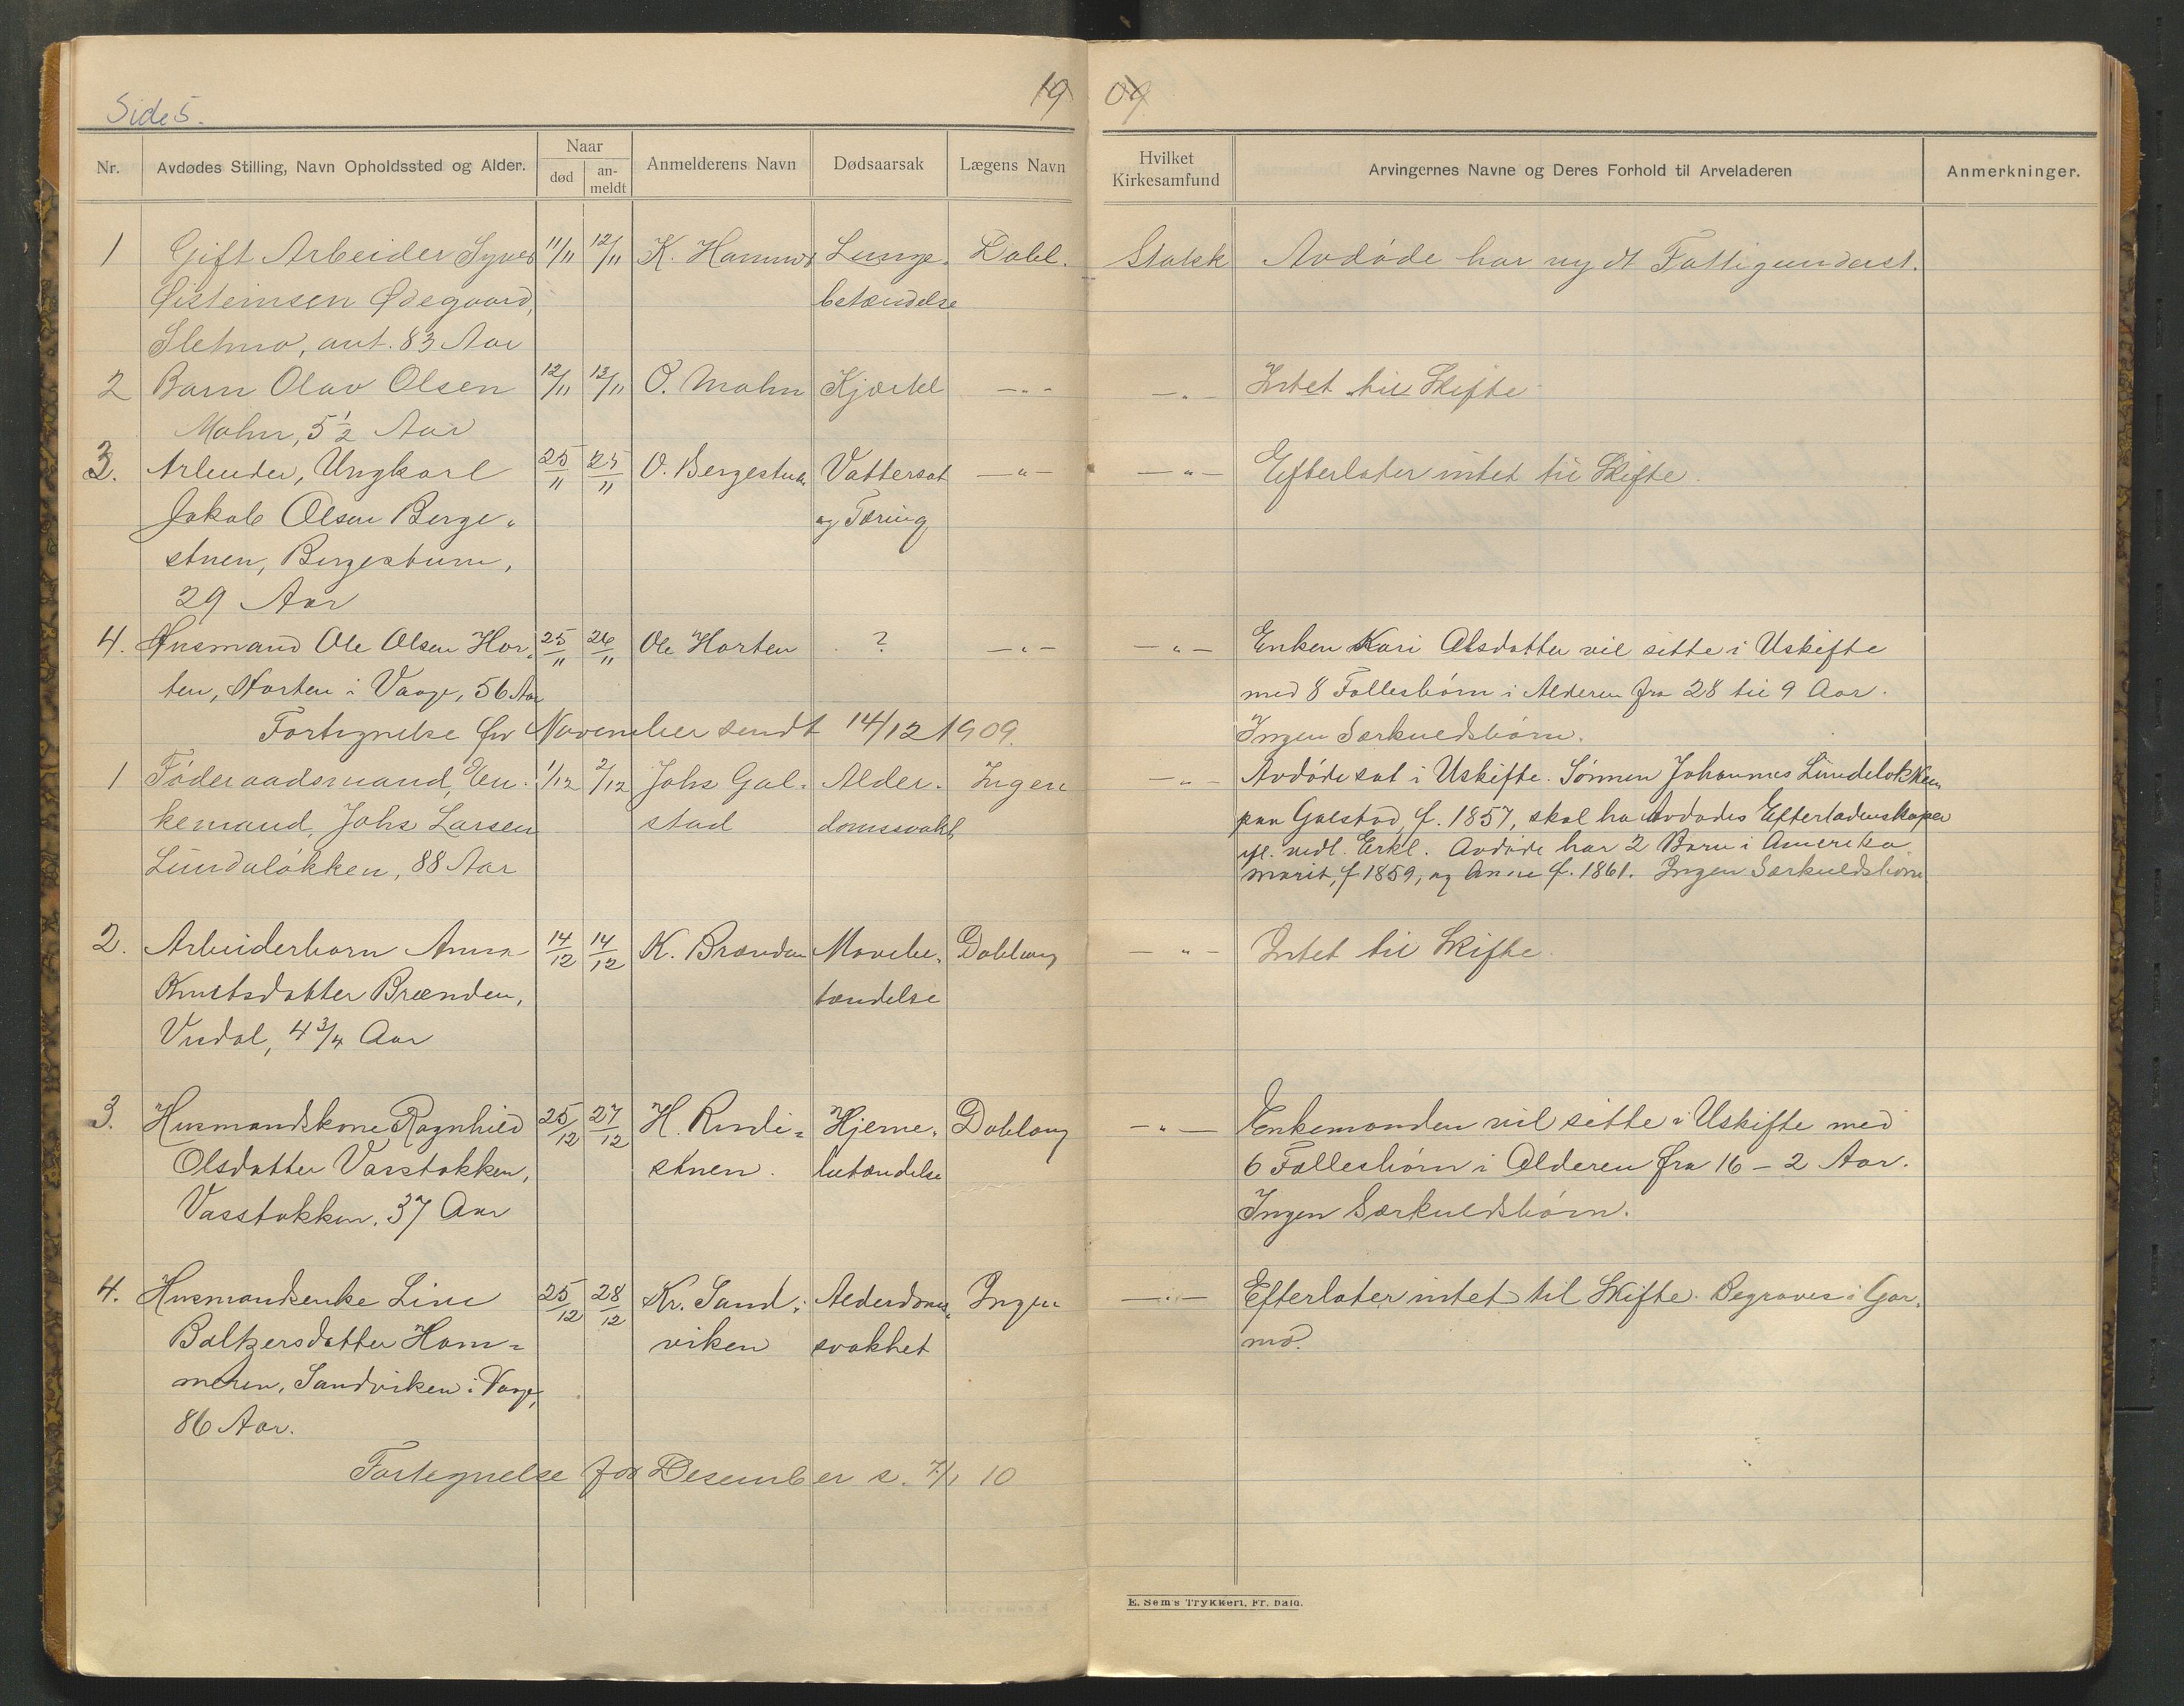 Side 5.
19 09
Nr.
Avdødes Stilling, Navn Opholdssted og Alder.
Naar
død
an-
meldt
Anmelderens Navn
Dødsaarsak
Lægens Navn
Hvilket
Kirkesamfund
Arvingernes Navne og Deres Forhold til Arveladeren
Anmerkninger.
1 Gift Arbeider Syver 11/11 12/11 K. Hammer Lunge- Dahl. Statsk Avdøde har nydt Fattigunderst.
Øisteinsen Ødegaard, betændelse
Sletmo, ant. 83 Aar
2 Barn Olav Olsen 12/11 13/11 O. Mohn Kjertel —„— —„— Intet til Skifte
Mohn, 5 1/2 Aar
3. Arbeider, Ungkarl 25/11 25/11 O. Bergestuen Vattersot —„— —„— Efterlater intet til Skifte.
Jakob Olsen Berge- og Tæring
stuen, Bergestuen,
29 Aar
4. Husmand Ole Olsen Hor- 25/11 26/11 Ole Horten ? —„— —„— Enken Kari Olsdatter vil sitte i Uskifte
ten, Horten i Vaage, 56 Aar med 8 Fællesbørn i Alderen fra 28 til 9 Aar.
Fortegnelse for November sendt 14/12 1909. Ingen Særkuldsbørn.
1 Føderaadsmand, En- 1/12 2/12 Johs Gal- Alder- Ingen —„— Avdøde sat i Uskifte. Sønnen Johannes Lundeløkken
kemand, Johs Larsen stad domssvakh. paa Galstad, f. 1857, skal ha Avdødes Efterladenskaper
Lundaløkken, 88 Aar ifl. vedl. Erkl. Avdøde har 2 Børn i Amerika
Marit, f 1859, og Anne f. 1861. Ingen Særkuldsbørn
2. Arbeiderbarn Anna 14/12 14/12 K. Brænden Mavebe- Dahlong —„— Intet til Skifte.
Knutsdatter Brænden, tændelse
Vudal, 4 3/4 Aar
3. Husmandskone Ragnhild 25/12 27/12 H. Rudi- Hjerne- Dahlong —„— Enkemanden vil sitte i Uskifte med
Olsdatter Vasstokken, stuen. betændelse 6 Fællesbørn i Alderen fra 16 – 2 Aar.
Vasstokken, 37 Aar Ingen Særkuldsbørn.
4. Husmandsenke Line 25/12 28/12 Kr. Sand- Alderdoms- Ingen —„— Efterlater intet til Skifte. Begraves i Gar-
Baltzersdatter Ham- viken svakhet mo.
meren, Sandviken i Vaage,
86 Aar.
Fortegnelse for Desember s. 7/1 10
E. Sem's Trykkeri, Fr. hald.